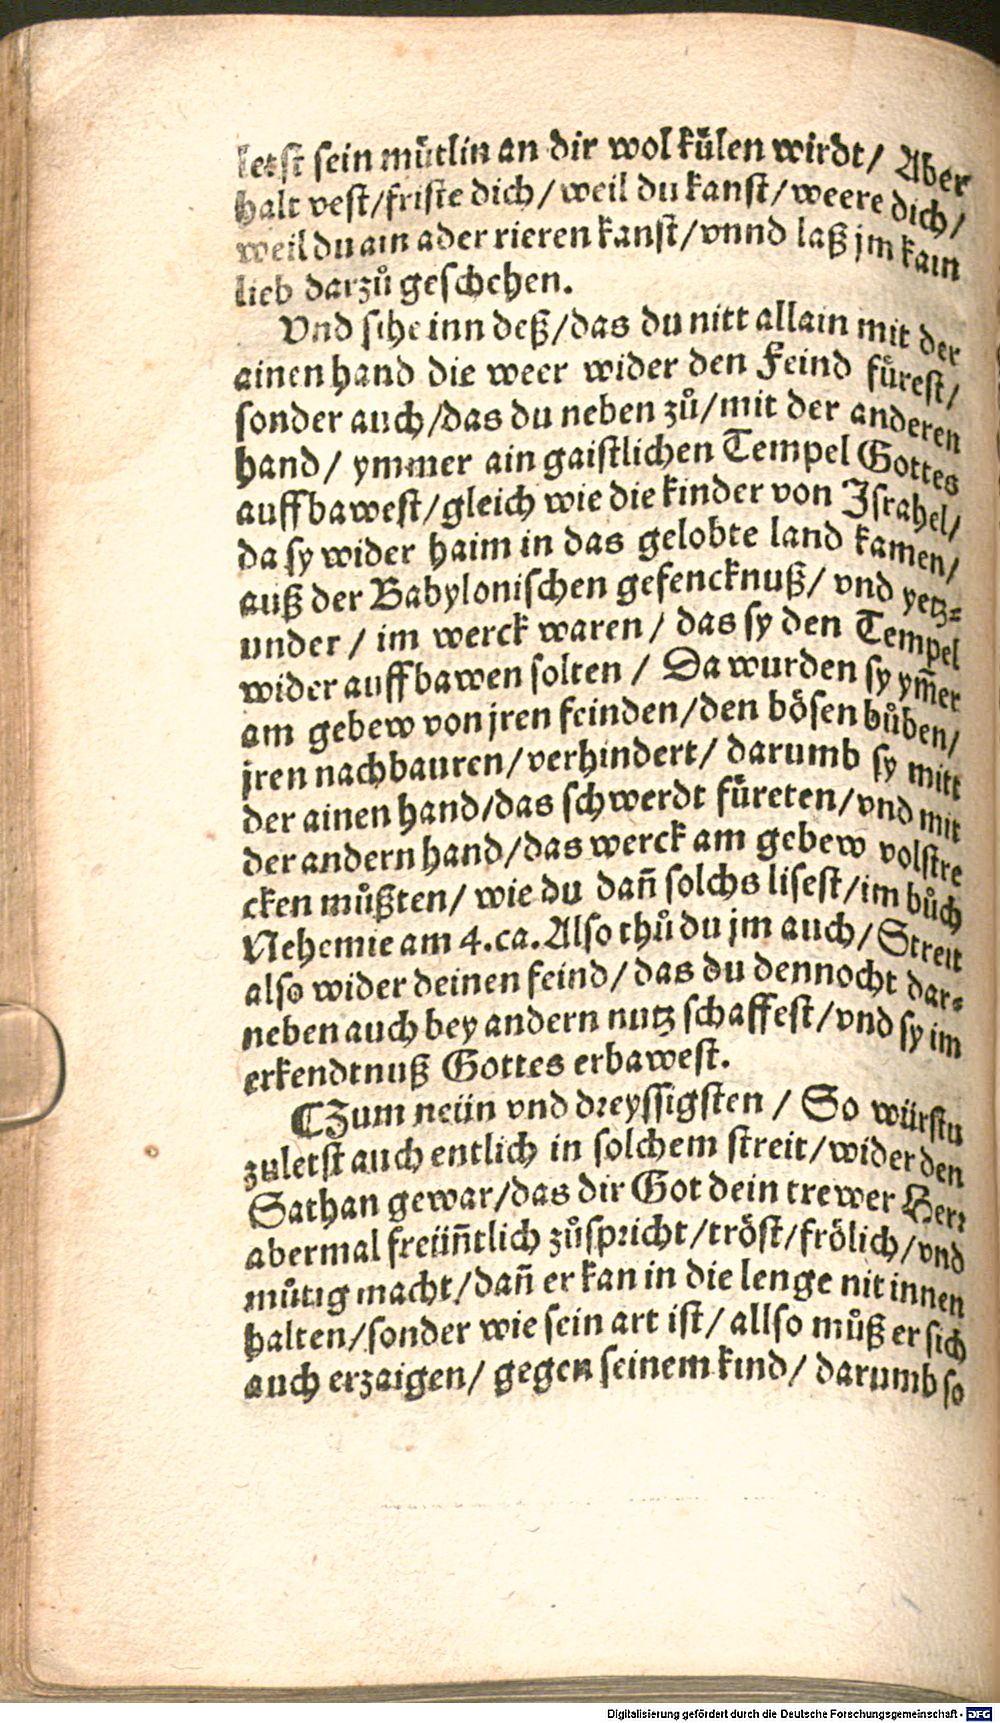 letst sein muͤtlin an dir wol kuͤlen wirdt / Aber
halt vest / friste dich / weil du kanst / weere dich /
weil du ain ader rieren kanst / vnnd laß jm kain
lieb darzuͦ geschehen.
Vnd sihe inn deß / das du nitt allain mit der
ainen hand die weer wider den Feind fuͤrest /
sonder auch / das du neben zuͦ / mit der anderen
hand / ymmer ain gaistlichen Tempel Gottes
auffbawest / gleich wie die kinder von Israhel /
da sy wider haim in das gelobte land kamen /
auß der Babylonischen gefencknuß / vnd yetz⸗
under / im werck waren / das sy den Tempel
wider auffbawen solten / Da wurden sy ym̄er
am gebew von jren feinden / den boͤsen buͦben /
jren nachbauren / verhindert / darumb sy mitt
der ainen hand / das schwerdt fuͤreten / vnd mit
der andern hand / das werck am gebew volstre
cken muͦßten / wie du dan̄ solchs lisest / im buͦch
Nehemie am 4. ca. Also thuͦ du jm auch / Streit
also wider deinen feind / das du dennocht dar⸗
neben auch bey andern nutz schaffest / vnd sy im
erkendtnuß Gottes erbawest.
⸿ Zum neün vnd dreyssigsten / So würstu
zuletst auch entlich in solchem streit / wider den
Sathan gewar / das dir Got dein trewer Herr
abermal freün̄tlich zuͦspricht / troͤst / froͤlich / vnd
muͦtig macht / dan̄ er kan in die lenge nit innen
halten / sonder wie sein art ist / allso muͦß er sich
auch erzaigen / gegen seinem kind / darumb so
Digitalisierung gefördert durch die Deutsche Forschungsgemeinschaft - DFG